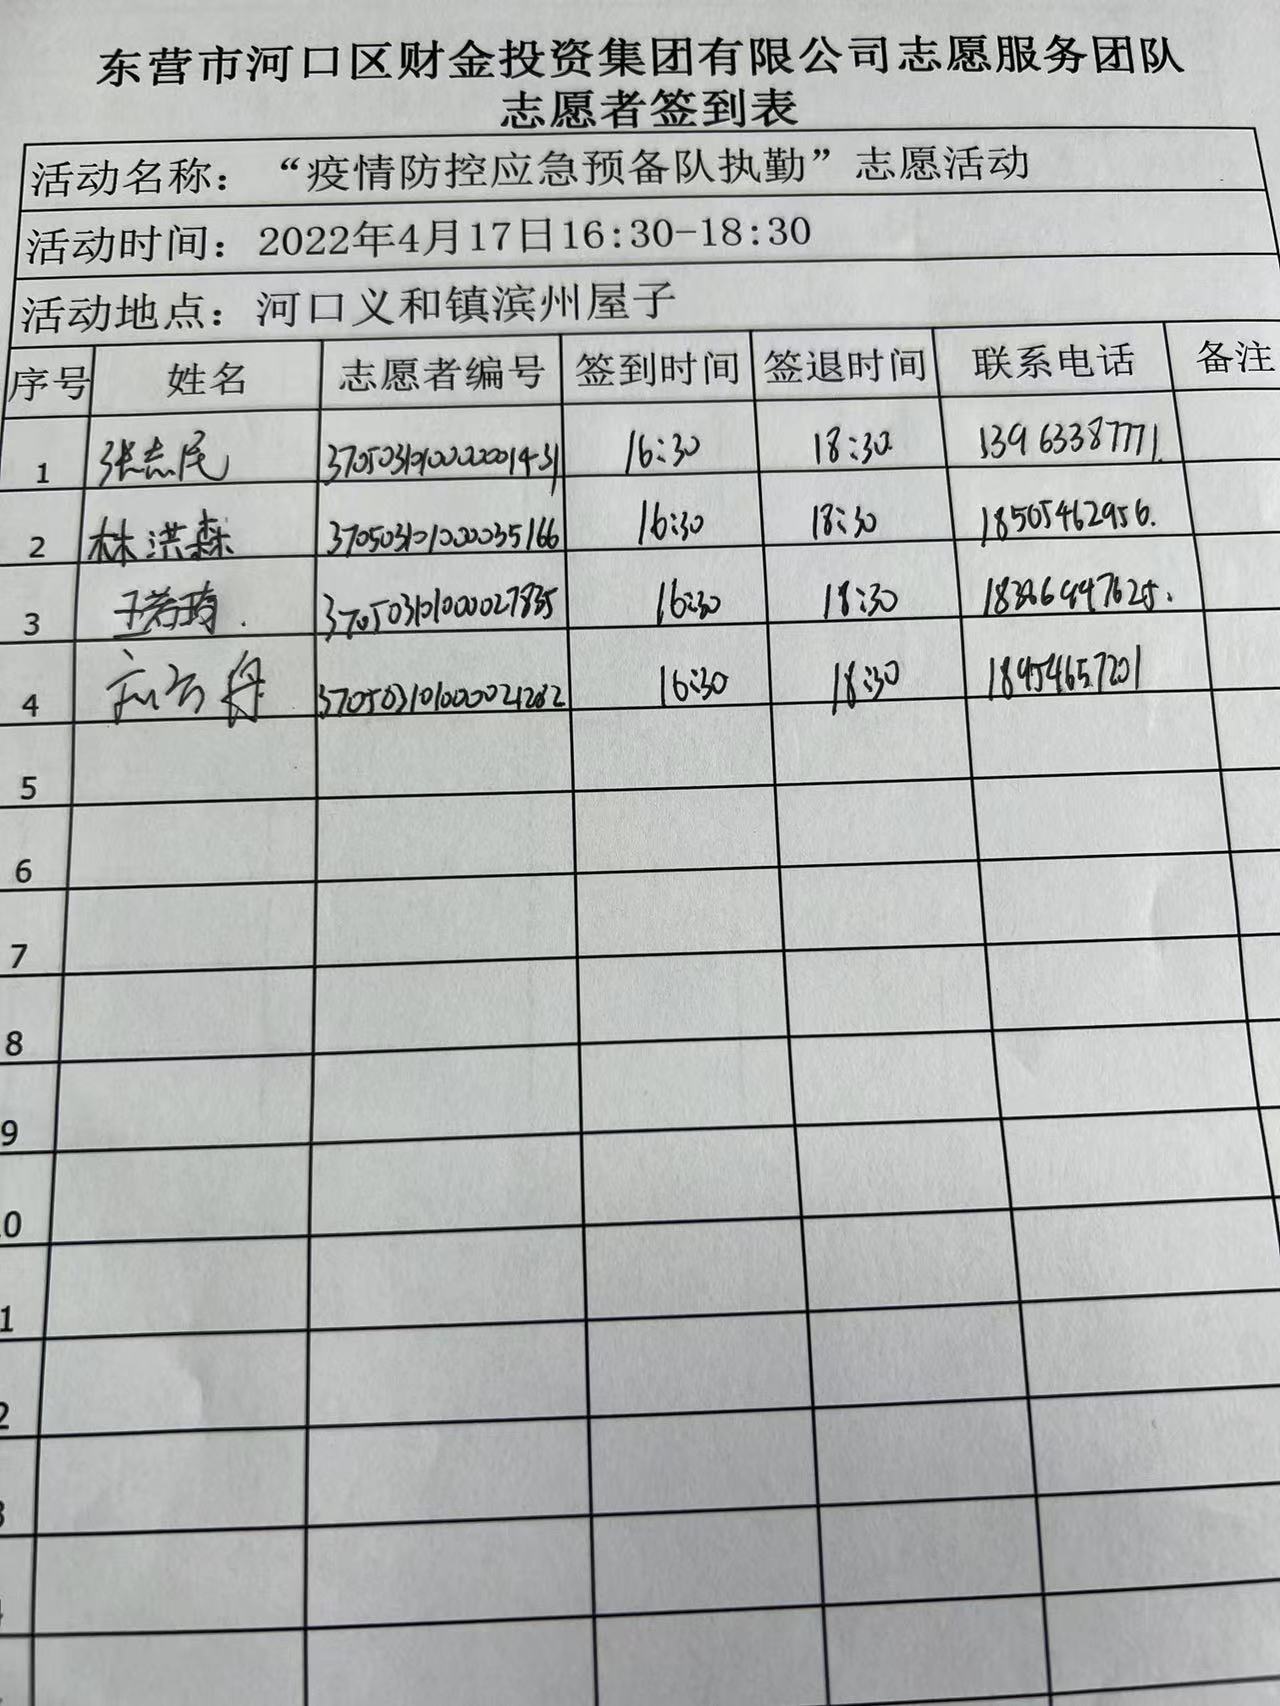 东营市河口区财金投资集团有限公司志愿服务团队
志愿者签到表
活动名称：“疫情防控应急预备队执勤”志愿活动
活动时间：2022年4月17日16:30-18:30
活动地点：河口义和镇滨州屋子
序号 姓名 志愿者编号 签到时间 签退时间 联系电话 备注
1 张志民 16:30 18:30 13963387771
2 林洪森 370503101000035166 16:30 18:30 18505462956.
3 王若琦. 370503101000027835 16:30 18:30
4 370503101000021282 16:30 18:30 18954657201
5
6
7
8
9
0
1
2
3